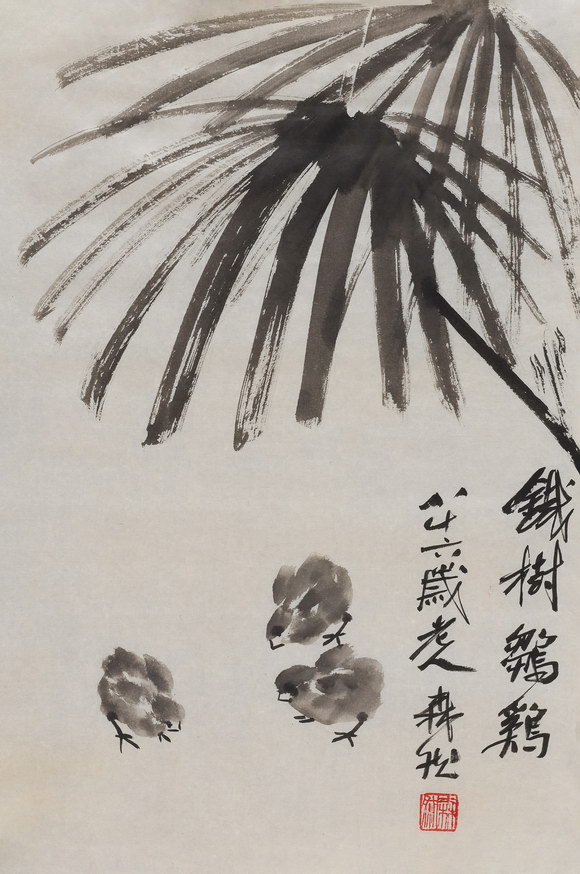 鐵樹鶵鷄
八十六歲老人